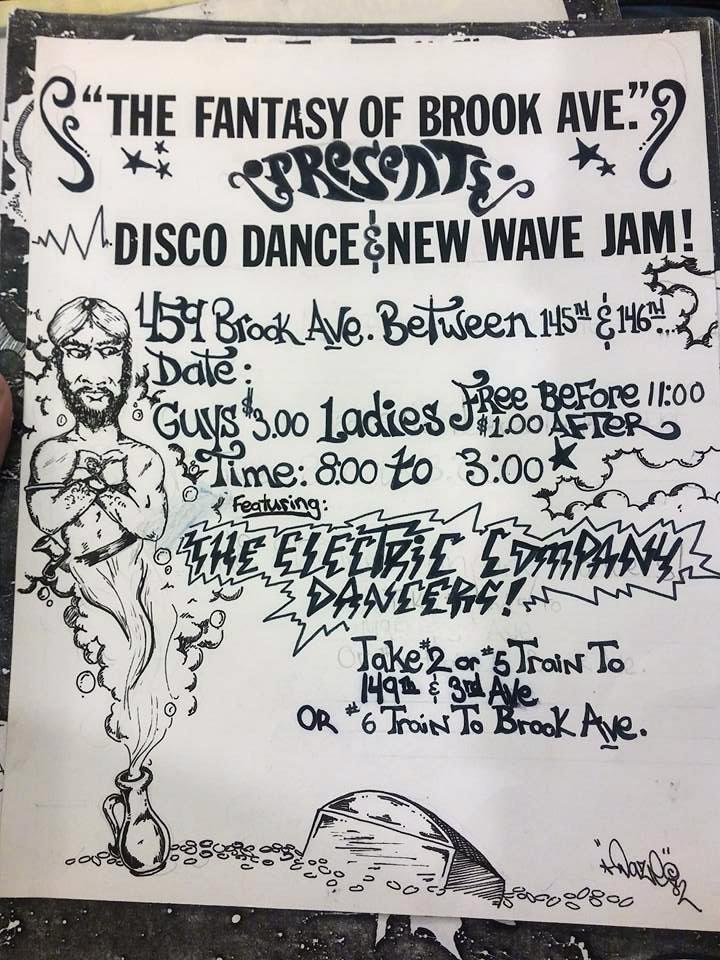 "THE FANTASY OF BROOK AVE."
PRESENTS
DISCO DANCE & NEW WAVE JAM!
459 Brook Ave. Between 145TH & 146TH...
Date:
Guys $3.00 Ladies Free Before 11:00
$1.00 AFTER
Time: 8:00 to 3:00
Featuring:
THE ELECTRIC COMPANY
DANCERS!
Take #2 or #5 Train To
149th & 3rd Ave
OR #6 Train To Brook Ave.